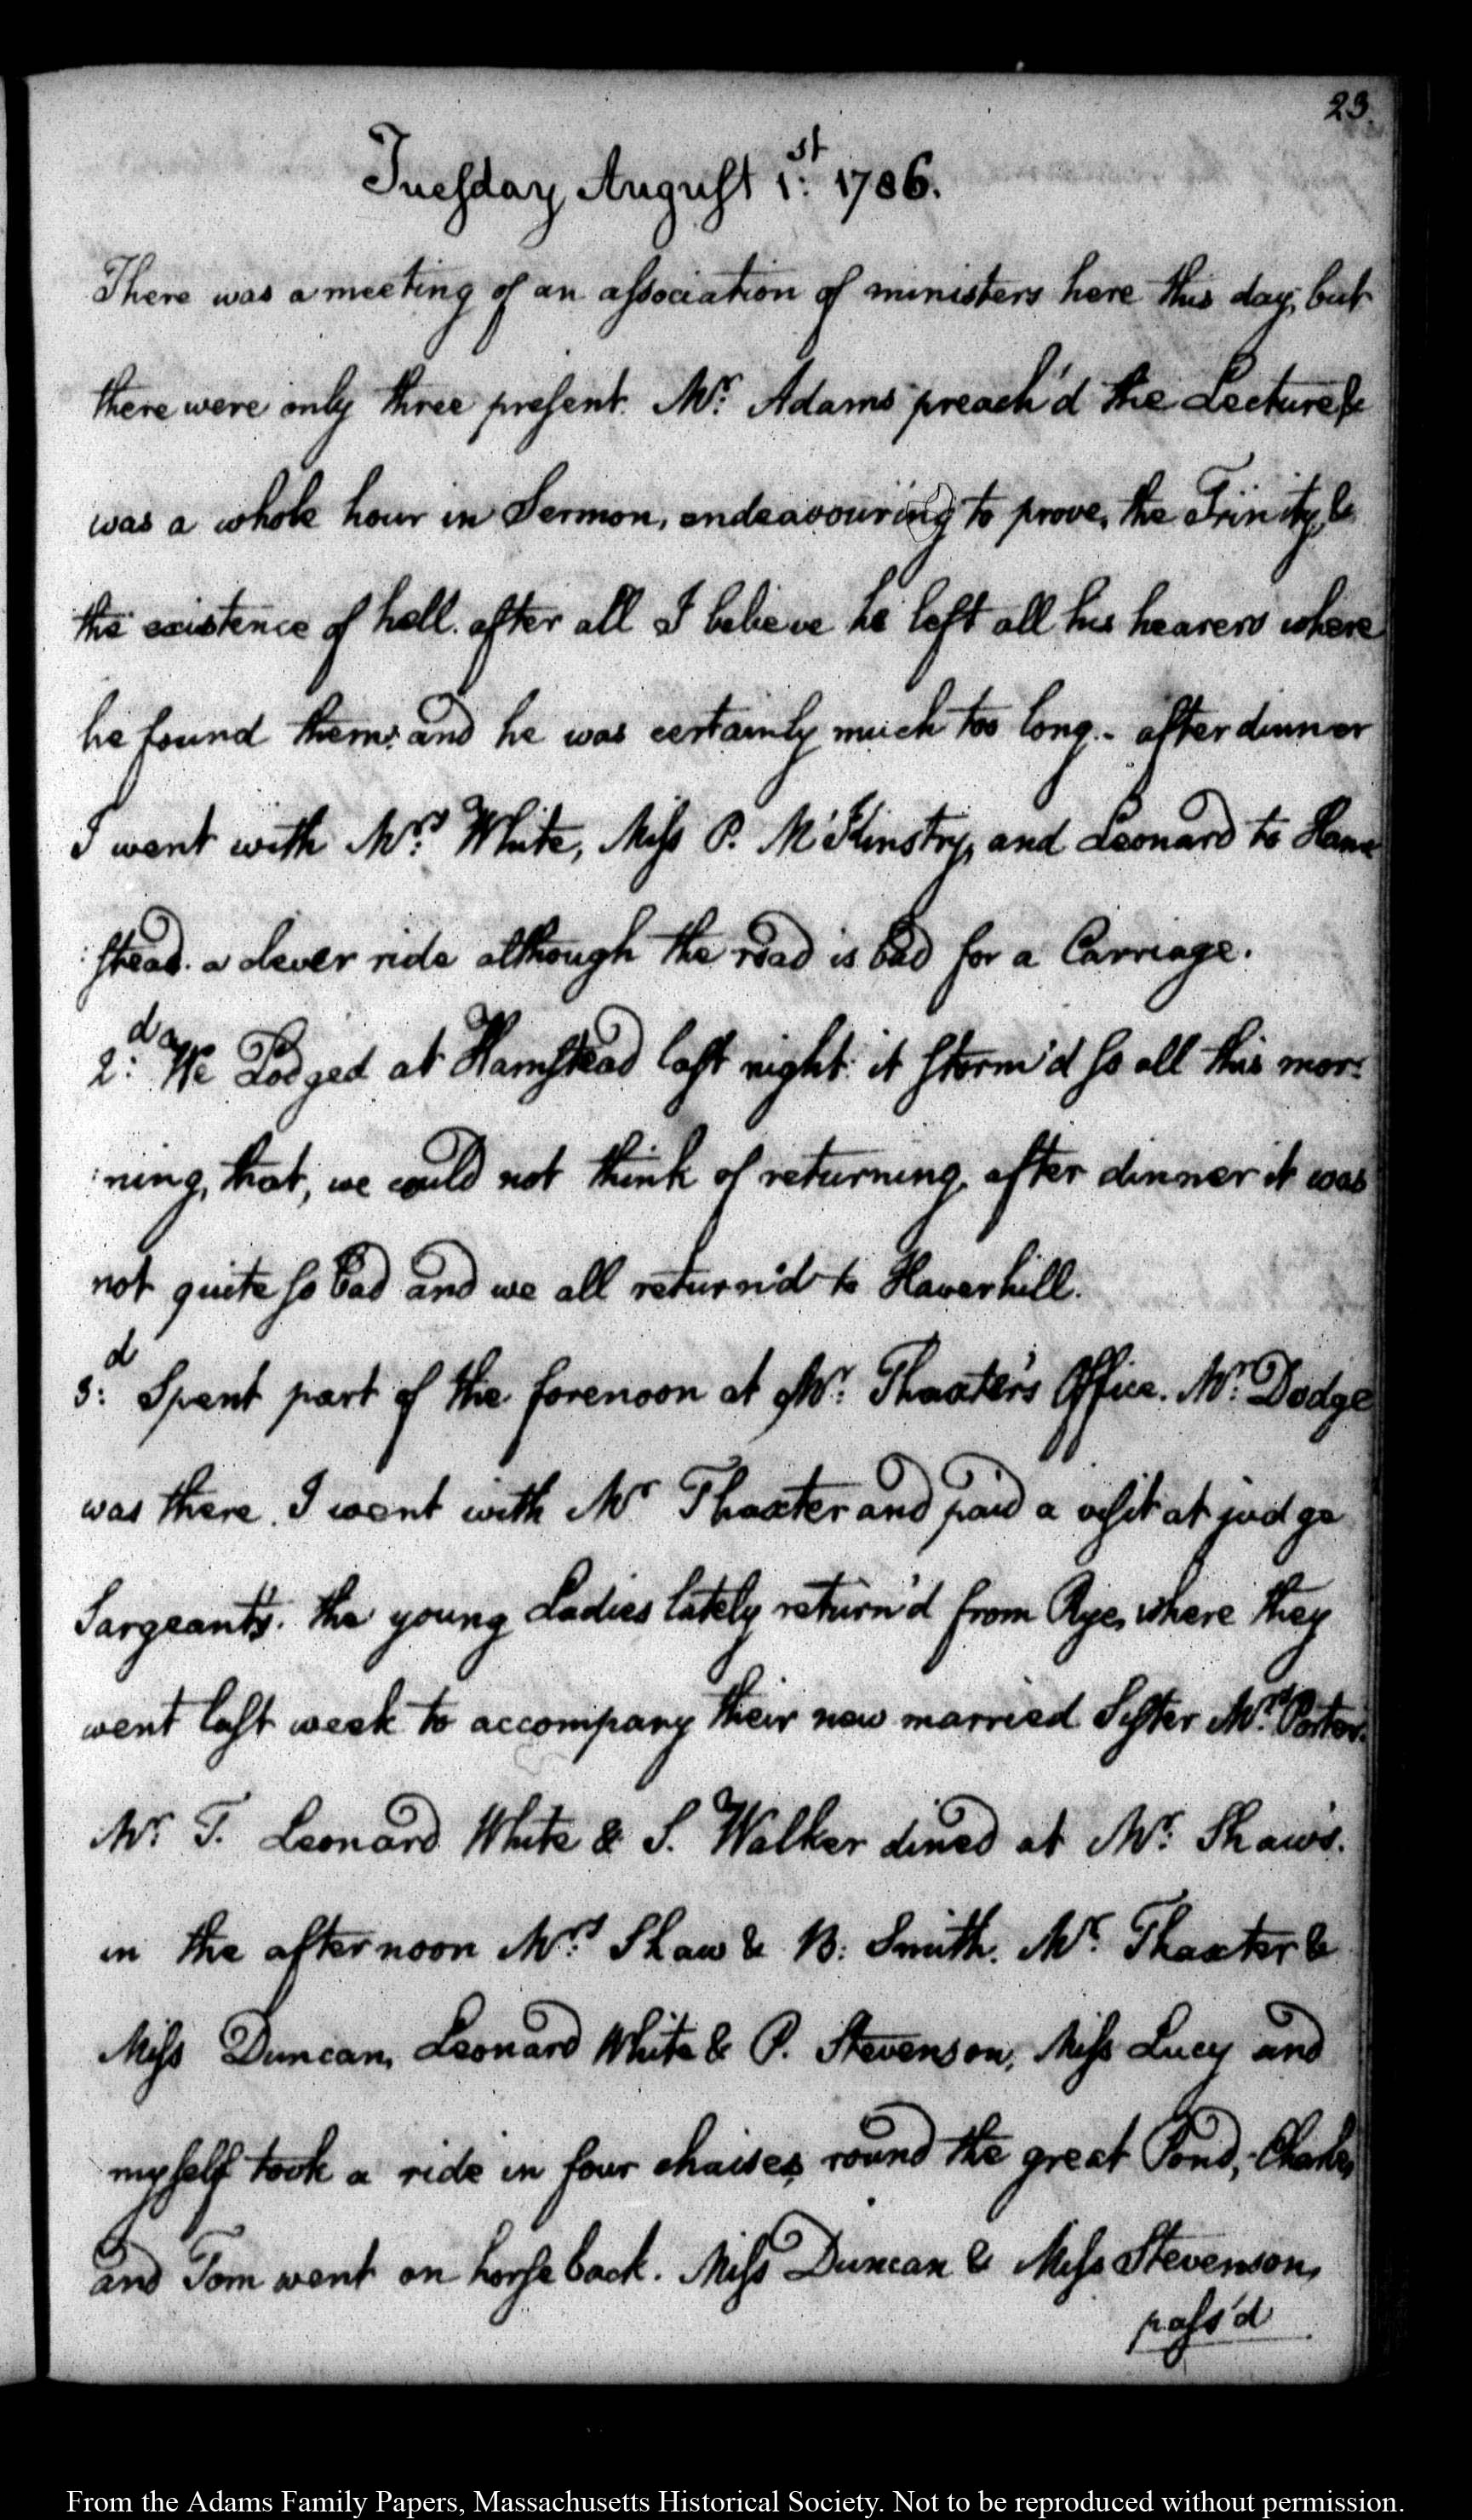 23.
Tuesday August 1.st 1786.
There was a meeting of an association of ministers here this day, but
there were only three present. Mr. Adams preach'd the Lecture &
was a whole hour in Sermon, endeavouring to prove, the Trinity, &
the existence of hell. after all I believe he left all his hearers where
he found them: and he was certainly much too long.- after dinner
I went with Mrs. White, Miss P. McKinstry, and Leonard to Ham
:stead. a clever ride although the road is bad for a Carriage.
2:d We Lodged at Hamstead last night: it storm'd so all this mor:
:ning, that, we could not think of returning, after dinner it was
not quite so bad and we all return'd to Haverhill.
3:d Spent part of the forenoon at Mr. Thaxter's Office. Mr. Dodge
was there. I went with Mr Thaxter and paid a visit at judge
Sargeant's. the young Ladies lately return'd from Rye, where they
went last week to accompany their new married Sister Mrs. Porter.
Mr T. Leonard White & S. Walker dined at Mr. Shaw's.
in the afternoon Mrs. Shaw & B: Smith. Mr. Thaxter &
Miss Duncan, Leonard White & P. Stevenson, Miss Lucy and
myself took a ride in four chaises, round the great Pond,- Charles,
and Tom went on horse back. Miss Duncan & Miss Stevenson,
pass'd
From the Adams Family Papers, Massachusetts Historical Society. Not to be reproduced without permission.